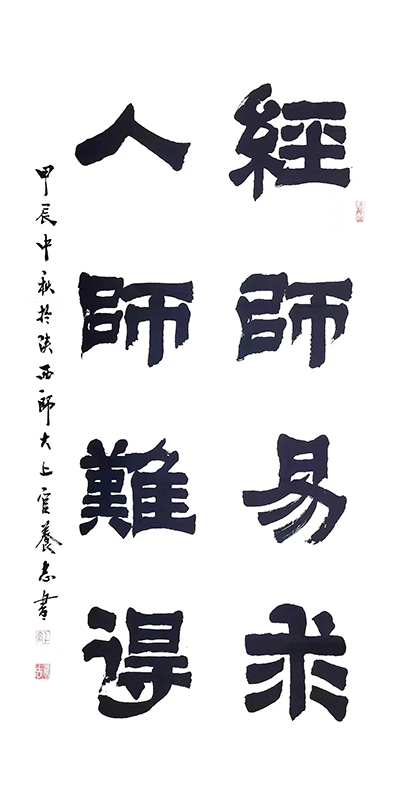 經師易求
人師難得
甲辰中秋於陝西師大上官養志書